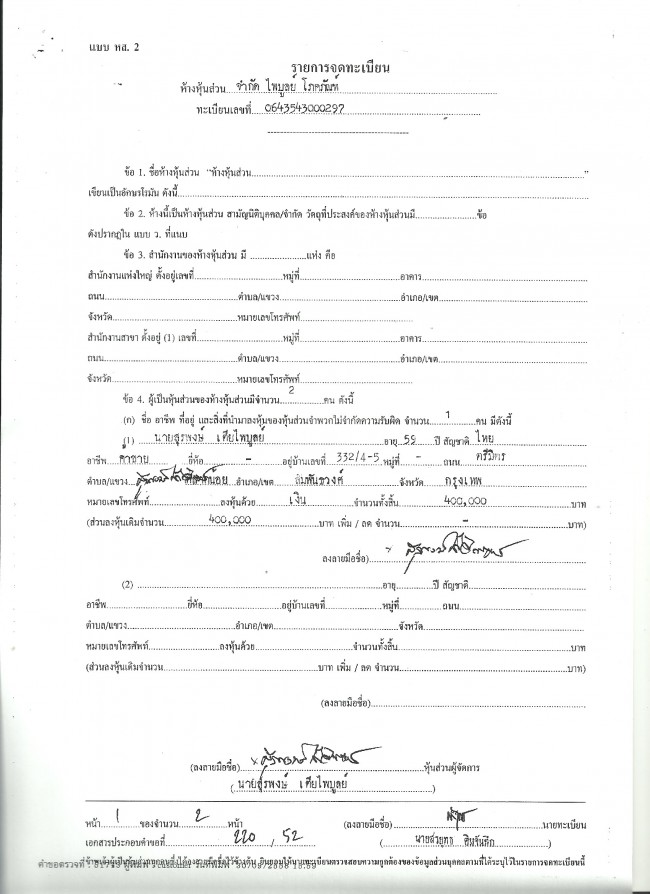 แบบ หส. 2
รายการจดทะเบียน
ห้างหุ้นส่วน จำกัด ไพบูลย์ โภคภัณฑ์
ทะเบียนเลขที่ 0643543000297
ข้อ 1. ชื่อห้างหุ้นส่วน "ห้างหุ้นส่วน..............."
เขียนเป็นอักษรโรมัน ดังนี้...............
ข้อ 2. ห้างนี้เป็นห้างหุ้นส่วน สามัญนิติบุคคล/จำกัด วัตถุที่ประสงค์ของห้างหุ้นส่วนมี...............ข้อ
ดังปรากฏใน แบบ ว. ที่แนบ
ข้อ 3. สำนักงานของห้างหุ้นส่วน มี ...............แห่ง คือ
สำนักงานแห่งใหญ่ ตั้งอยู่เลขที่...............หมู่ที่...............อาคาร...............
ถนน...............ตำบล/แขวง...............อำเภอ/เขต...............
จังหวัด...............หมายเลขโทรศัพท์...............
สำนักงานสาขา ตั้งอยู่ (1) เลขที่...............หมู่ที่...............อาคาร...............
ถนน...............ตำบล/แขวง...............อำเภอ/เขต...............
จังหวัด...............หมายเลขโทรศัพท์...............
ข้อ 4. ผู้เป็นหุ้นส่วนของห้างหุ้นส่วนมีจำนวน 2 คน ดังนี้
(ก) ชื่อ อาชีพ ที่อยู่ และสิ่งที่นำมาลงหุ้นของหุ้นส่วนจำพวกไม่จำกัดความรับผิด จำนวน 1 คน มีดังนี้
(1) นายสุรพงษ์ เตียไพบูลย์ อายุ 59 ปี สัญชาติ ไทย
อาชีพ ค้าขาย ยี่ห้อ - อยู่บ้านเลขที่ 332/4-5 หมู่ที่ - ถนน
ตำบล/แขวง อำเภอ/เขต สัมพันธวงศ์ จังหวัด กรุงเทพ
หมายเลขโทรศัพท์...............ลงหุ้นด้วย เงิน จำนวนทั้งสิ้น 400,000 บาท
(ส่วนลงหุ้นเดิมจำนวน 400,000 บาท เพิ่ม / ลด จำนวน - บาท)
ลงลายมือชื่อ)
(2) ...............อายุ...............ปี สัญชาติ...............
อาชีพ...............ยี่ห้อ...............อยู่บ้านเลขที่...............หมู่ที่...............ถนน...............
ตำบล/แขวง...............อำเภอ/เขต...............จังหวัด...............
หมายเลขโทรศัพท์...............ลงหุ้นด้วย...............จำนวนทั้งสิ้น...............บาท
(ส่วนลงหุ้นเดิมจำนวน...............บาท เพิ่ม / ลด จำนวน...............บาท)
(ลงลายมือชื่อ)...............
(ลงลายมือชื่อ) หุ้นส่วนผู้จัดการ
(นายสุรพงษ์ เตียไพบูลย์)
หน้า 1 ของจำนวน 2 หน้า (ลงลายมือชื่อ) นายทะเบียน
เอกสารประกอบคำขอที่ 220 / 52